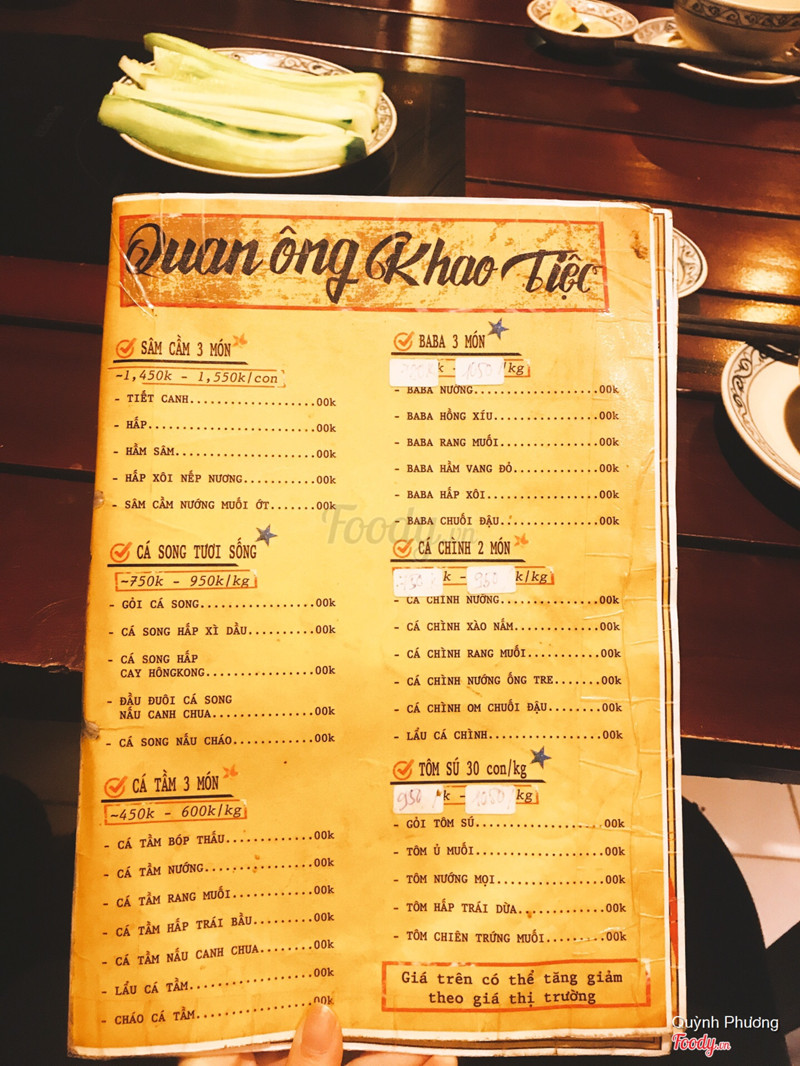 Quan ông Khao Tiệc
SÂM CẦM 3 MÓN
~1,450k - 1,550k/con
- TIẾT CANH....................00k
- HẤP..........................00k
- HẦM SÂM......................00k
- HẤP XÔI NẾP NƯƠNG...........00k
- SÂM CẦM NƯỚNG MUỐI ỚT.......00k
CÁ SONG TƯƠI SỐNG
~750k - 950k/kg
- GỎI CÁ SONG..................00k
- CÁ SONG HẤP XÌ DẦU..........00k
- CÁ SONG HẤP
CAY HÔNGKONG..................00k
- ĐẦU ĐUÔI CÁ SONG
NẤU CANH CHUA.................00k
- CÁ SONG NẤU CHÁO.............00k
CÁ TẦM 3 MÓN
~450k - 600k/kg
- CÁ TẦM BÓP THẤU..............00k
- CÁ TẦM NƯỚNG.................00k
- CÁ TẦM RANG MUỐI.............00k
- CÁ TẦM HẤP TRÁI BẦU..........00k
- CÁ TẦM NẤU CANH CHUA.........00k
- LẨU CÁ TẦM...................00k
- CHÁO CÁ TẦM..................00k
BABA 3 MÓN
k - 1050/kg
- BABA NƯỚNG...................00k
- BABA HỒNG XÍU................00k
- BABA RANG MUỐI...............00k
- BABA HẦM VANG ĐỎ.............00k
- BABA HẤP XÔI.................00k
BABA CHUỐI ĐẬU................00k
CÁ CHÌNH 2 MÓN
750 k - 950 k/kg
- CÁ CHÌNH NƯỚNG...............00k
- CÁ CHÌNH XÀO NẤM.............00k
- CÁ CHÌNH RANG MUỐI...........00k
- CÁ CHÌNH NƯỚNG ỐNG TRE.......00k
- CÁ CHÌNH OM CHUỐI ĐẬU........00k
- LẨU CÁ CHÌNH.................00k
TÔM SÚ 30 con/kg
950 k - 1250/kg
- GỎI TÔM SÚ...................00k
- TÔM Ủ MUỐI...................00k
- TÔM NƯỚNG MỌI................00k
- TÔM HẤP TRÁI DỪA.............00k
- TÔM CHIÊN TRỨNG MUỐI.........00k
Giá trên có thể tăng giảm
theo giá thị trường
Foody.vn
Quỳnh Phương
Foody.vn